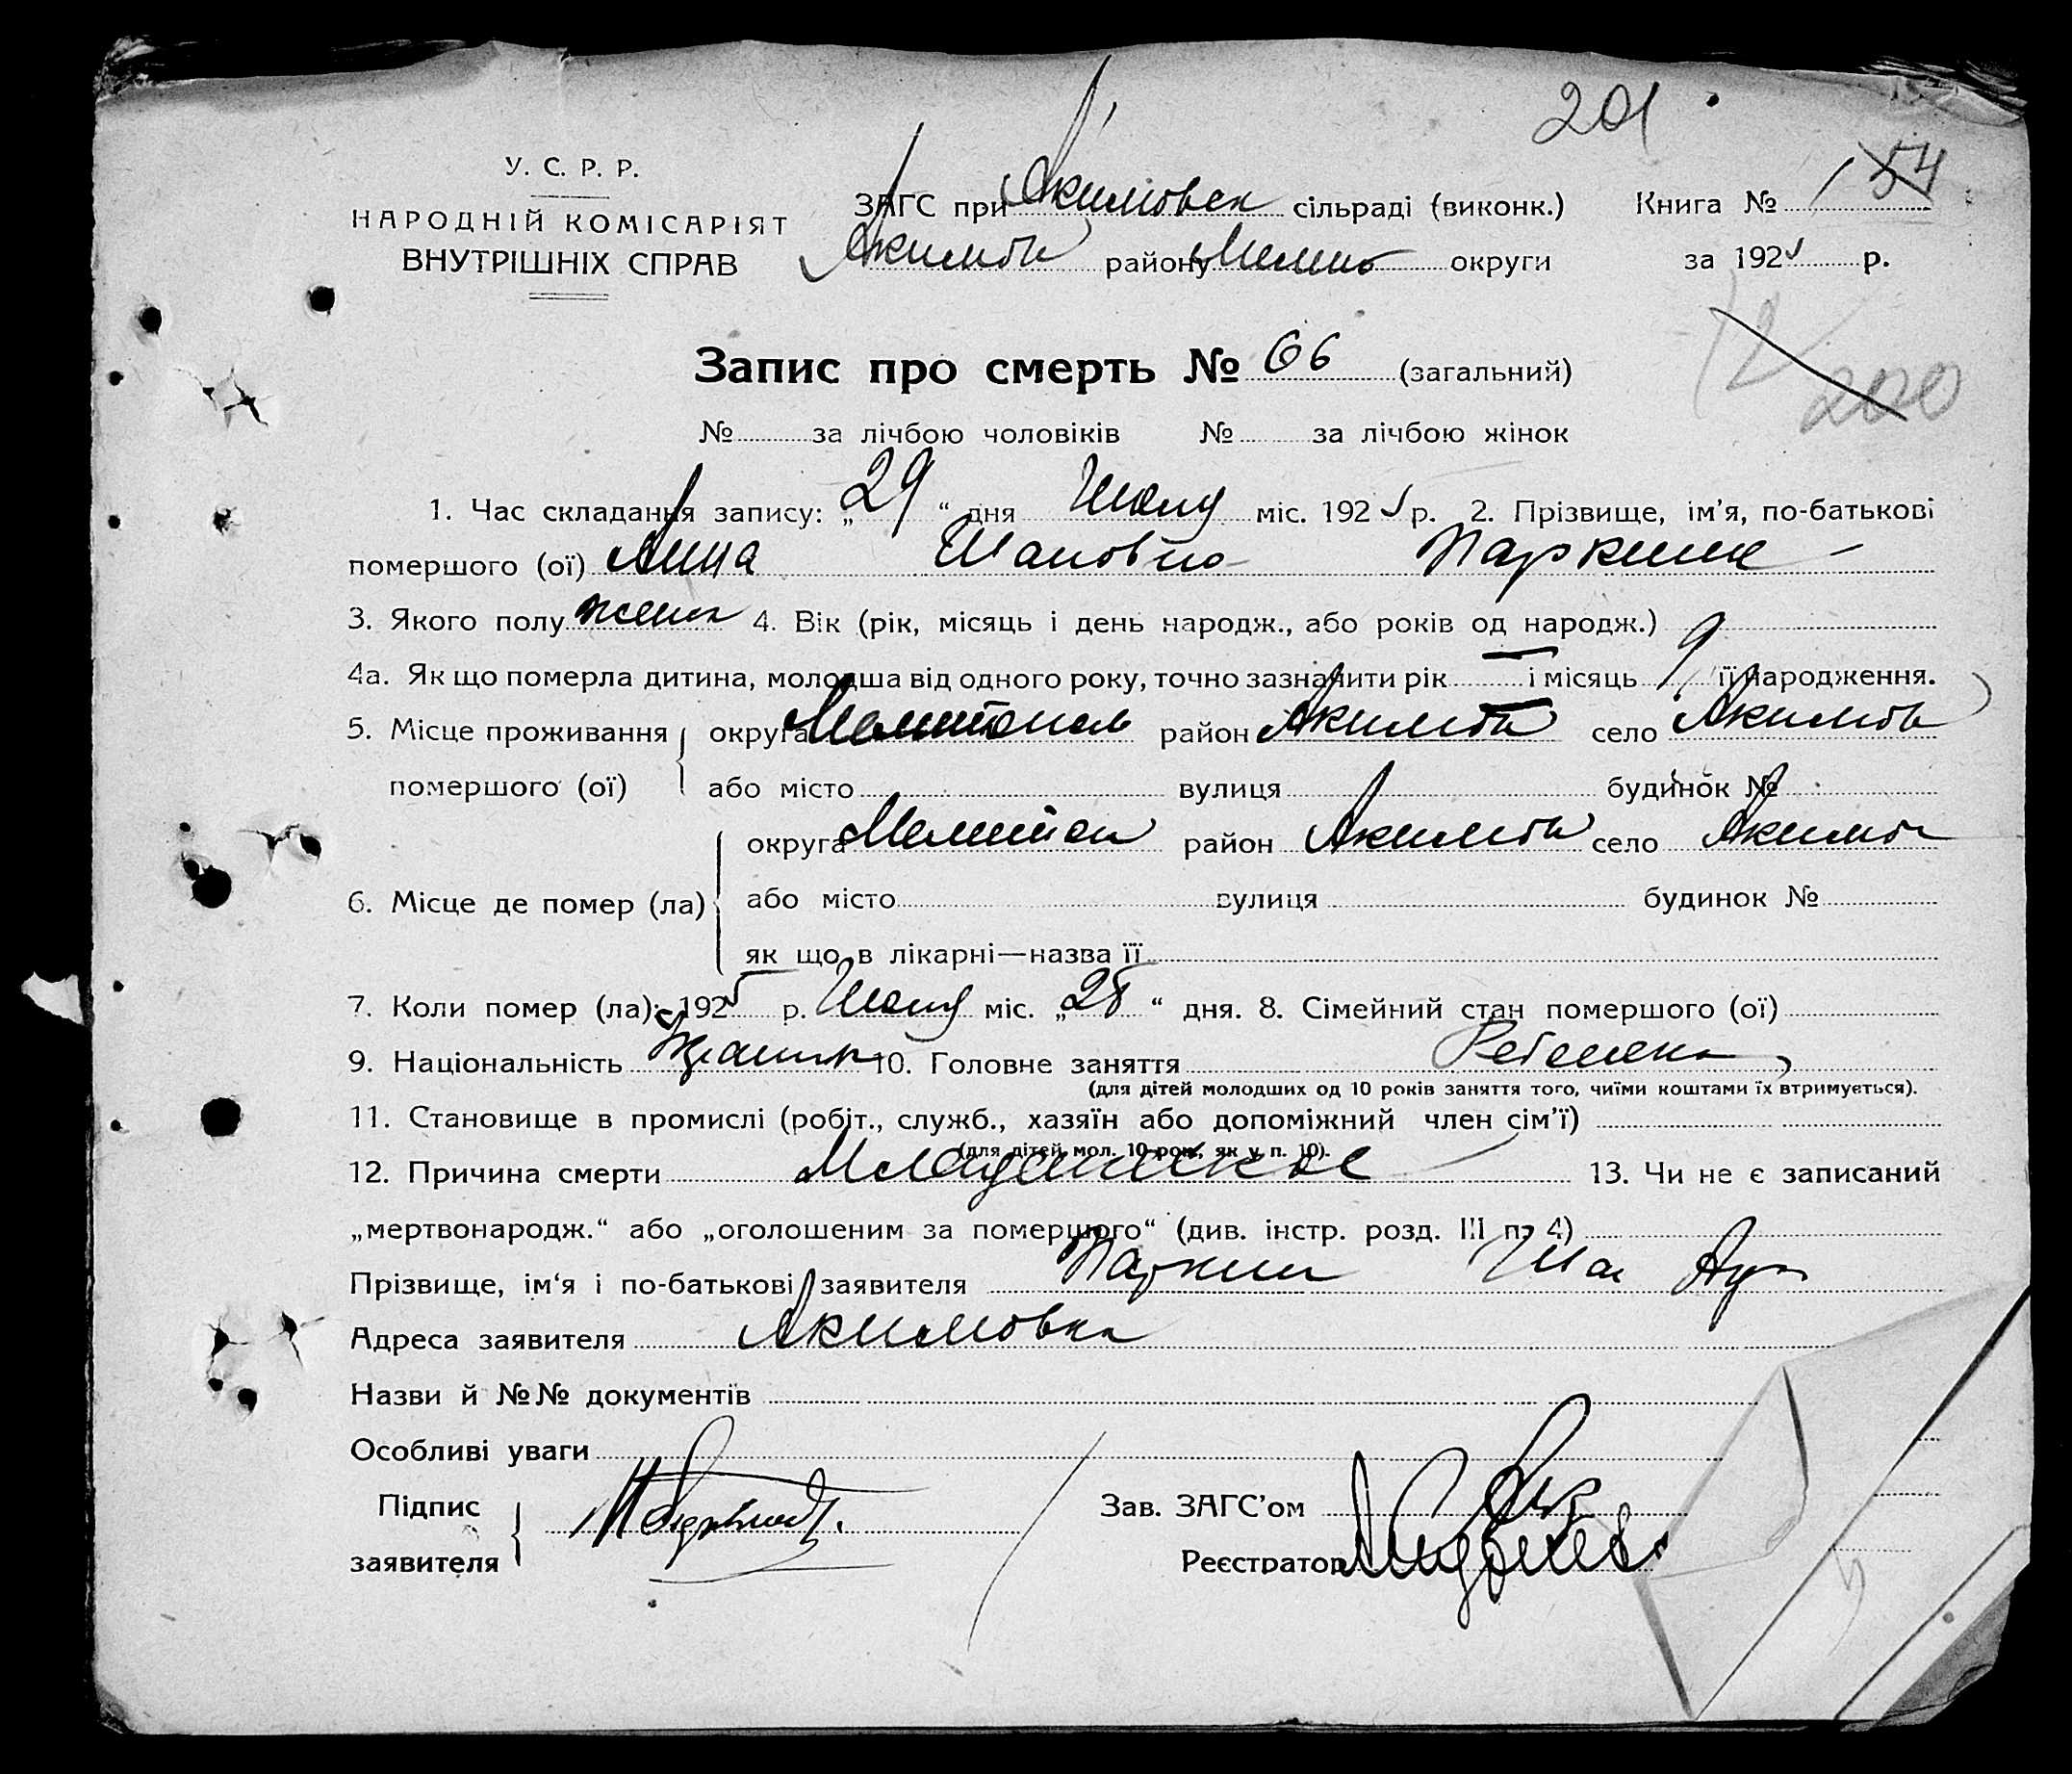 201
У. С. Р. Р.
НАРОДНІЙ КОМІСАРІЯТ
ВНУТРІШНІХ СПРАВ
ЗАГС при Акимовск сільраді (виконк.) Книга № 1 54
Акимов району округи за 1925 р.
200
Запис про смерть № 66 (загальний)
№ за лічбою чоловіків № за лічбою жінок
1. Час складання запису: „29“ дня міс. 1925 р. 2. Прізвище, ім’я, по-батькові
помершого (ої) Анна Паркин
3. Якого полу женск 4. Вік (рік, місяць і день народж., або років од народж.) 9
4а. Як що померла дитина, молодша від одного року, точно зазначити рік і місяць 9 її народження.
5. Місце проживання помершого (ої) округа Мелитополь район Акимов село Акимов
або місто вулиця будинок №
6. Місце де помер (ла) округа Мелитоп район Акимов село Акимов
або місто вулиця будинок №
як що в лікарні—назва її
7. Коли помер (ла): 1925 р. міс. „28“ дня. 8. Сімейний стан помершого (ої)
9. Національність 10. Головне заняття Ребенок
(для дітей молодших од 10 років заняття того, чиїми коштами їх втримується).
11. Становище в промислі (робіт., служб., хазяїн або допоміжний член сім’ї)
(для дітей мол. 10 рок., як у п. 10).
12. Причина смерти Младенческое 13. Чи не є записаний
„мертвонародж.“ або „оголошеним за померщого“ (див. інстр. розд. III п. 4)
Прізвище, ім‘я і по-батькові заявителя Паркин
Адреса заявителя Акимовка
Назви й №№ документів
Особливі уваги
Підпис заявителя
Зав. ЗАГС’ом
Реєстратор